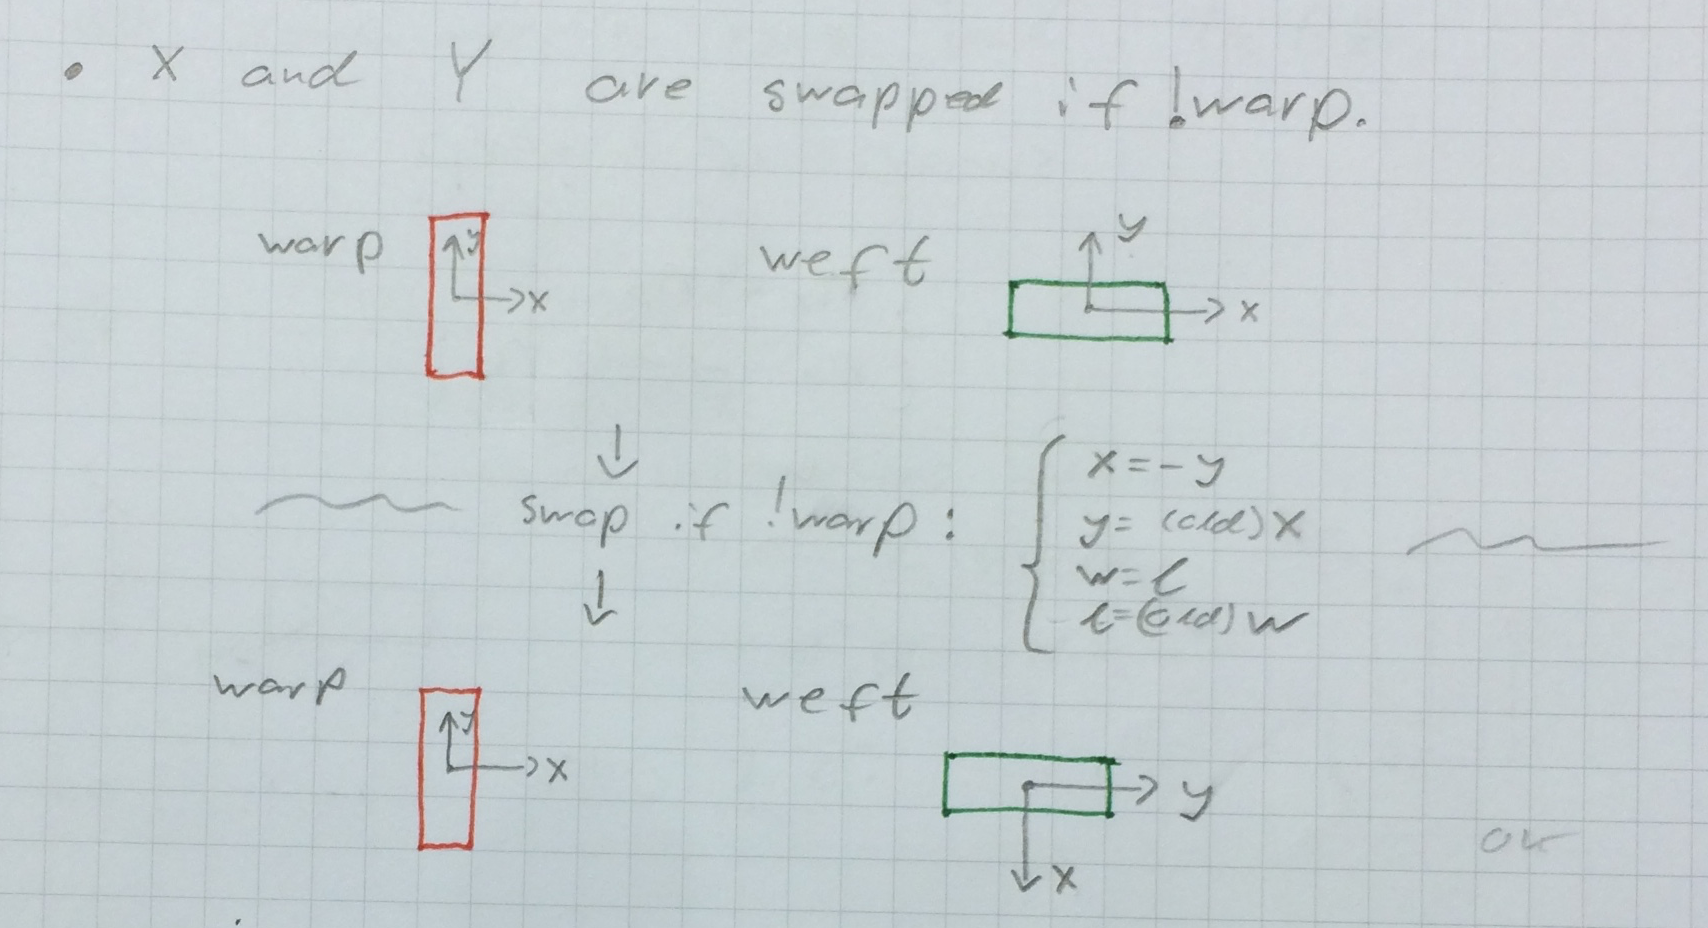 • X and Y are swapped if !warp.
warp y x weft y x
↓
swap if !warp: { x = - y
y = (old) x
w = l
l = (old) w
↓
warp y x weft y x
ok